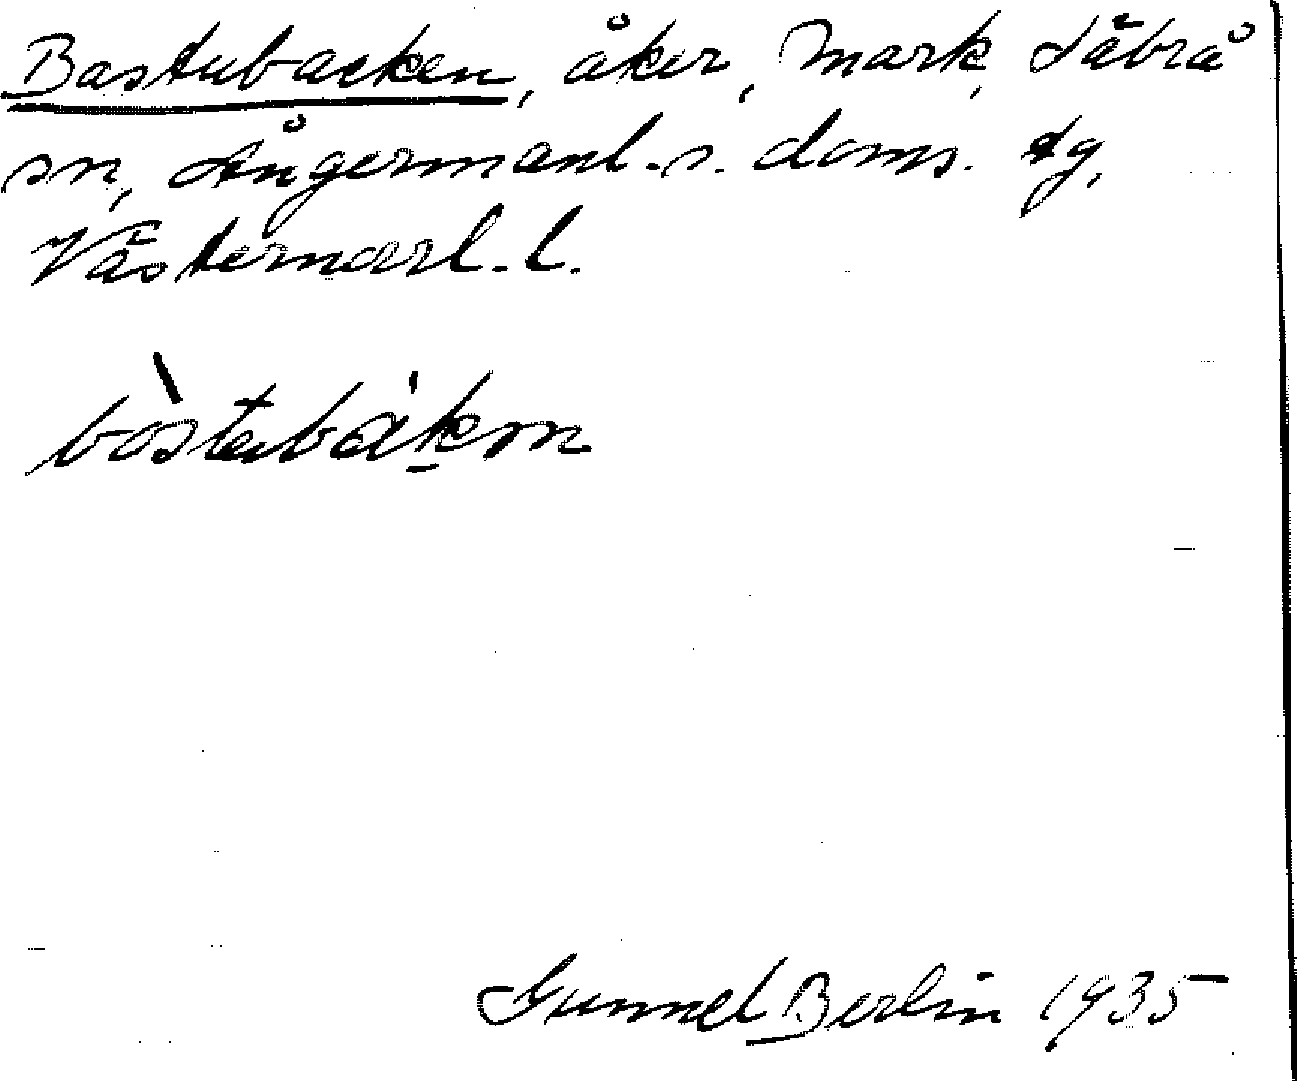 Bastubacken, åker, Mark, Säbrå
sn, Ångermanl. s. doms. tg,
Västernorrl. l.
Gunnel Berlin 1935